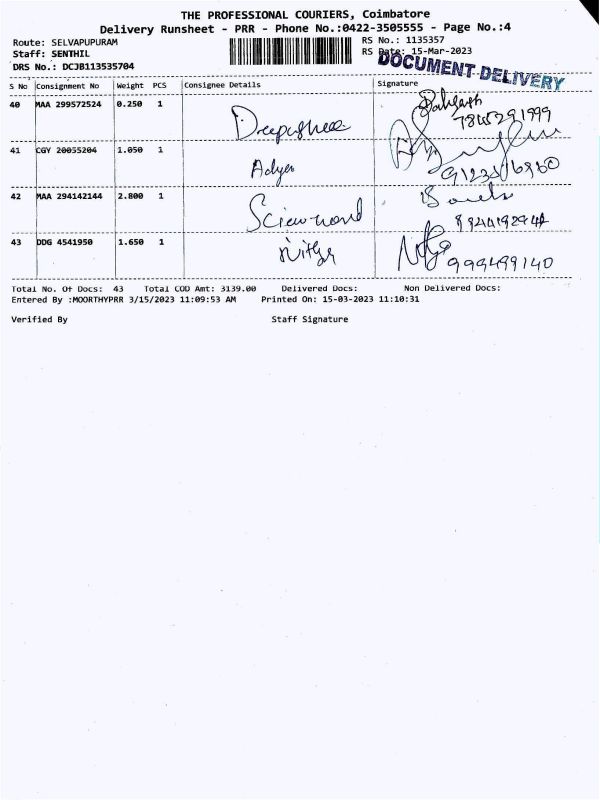 THE PROFESSIONAL COURIERS, Coimbatore
Delivery Runsheet - PRR - Phone No.:0422-3505555 - Page No.:4
Route: SELVAPUPURAM
RS No.: 1135357
Staff: SENTHIL
RS Date: 15-Mar-2023
DRS No.: DCJB113535704
DOCUMENT DELIVERY
S No Consignment No Weight PCS Consignee Details Signature
40 MAA 299572524 0.250 1
7845291999
41 CGY 20055204 1.050 1 Adyar
42 MAA 294142144 2.800 1
43 DDG 4541950 1.650 1 Nithya
999499140
Total No. Of Docs: 43 Total COD Amt: 3139.00 Delivered Docs: Non Delivered Docs:
Entered By :MOORTHYPRR 3/15/2023 11:09:53 AM Printed On: 15-03-2023 11:10:31
Verified By Staff Signature